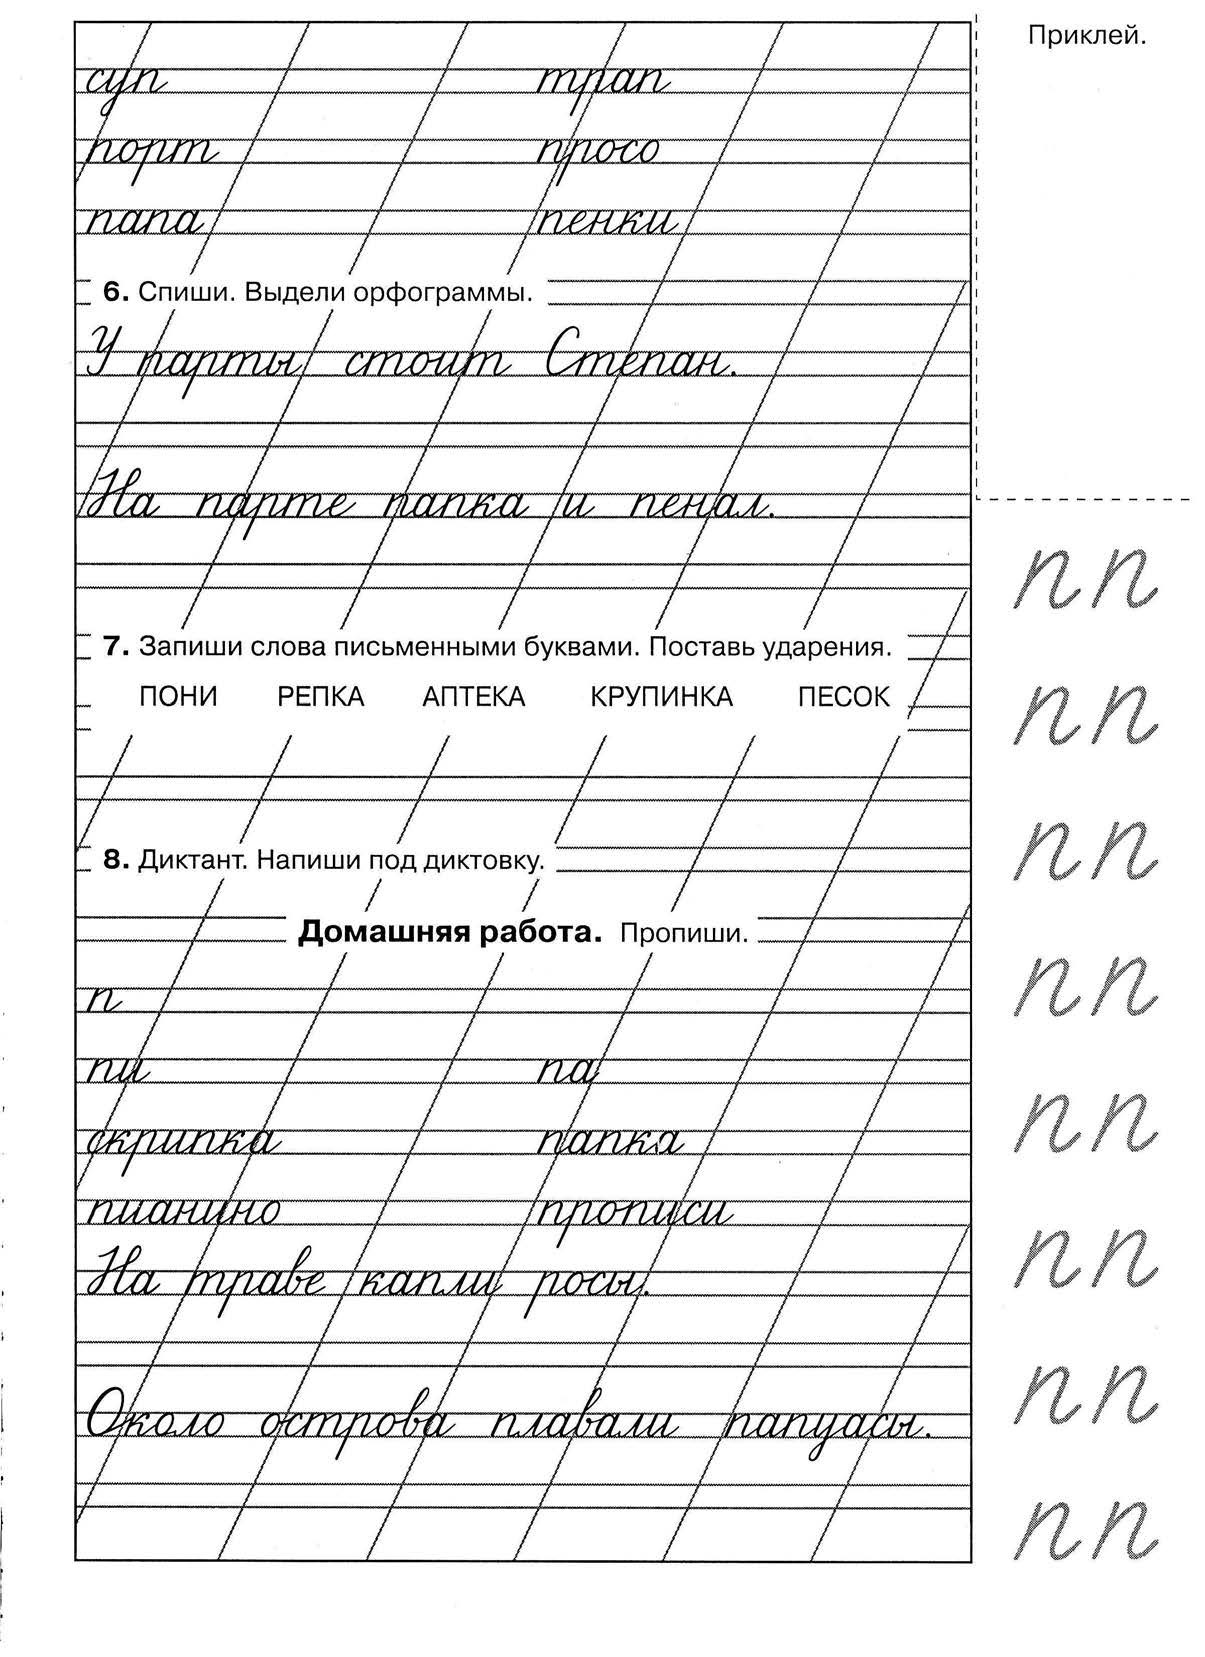 Приклей.
суп трап
порт просо
папа пенки
6. Спиши. Выдели орфограммы.
У парты стоит Степан.
На парте папка и пенал.
7. Запиши слова письменными буквами. Поставь ударения.
ПОНИ РЕПКА АПТЕКА КРУПИНКА ПЕСОК
8. Диктант. Напиши под диктовку.
Домашняя работа. Пропиши.
п
пи па
скрипка папка
пианино прописи
На траве капли росы.
Около острова плавали папуасы.
п п
п п
п п
п п
п п
п п
п п
п п